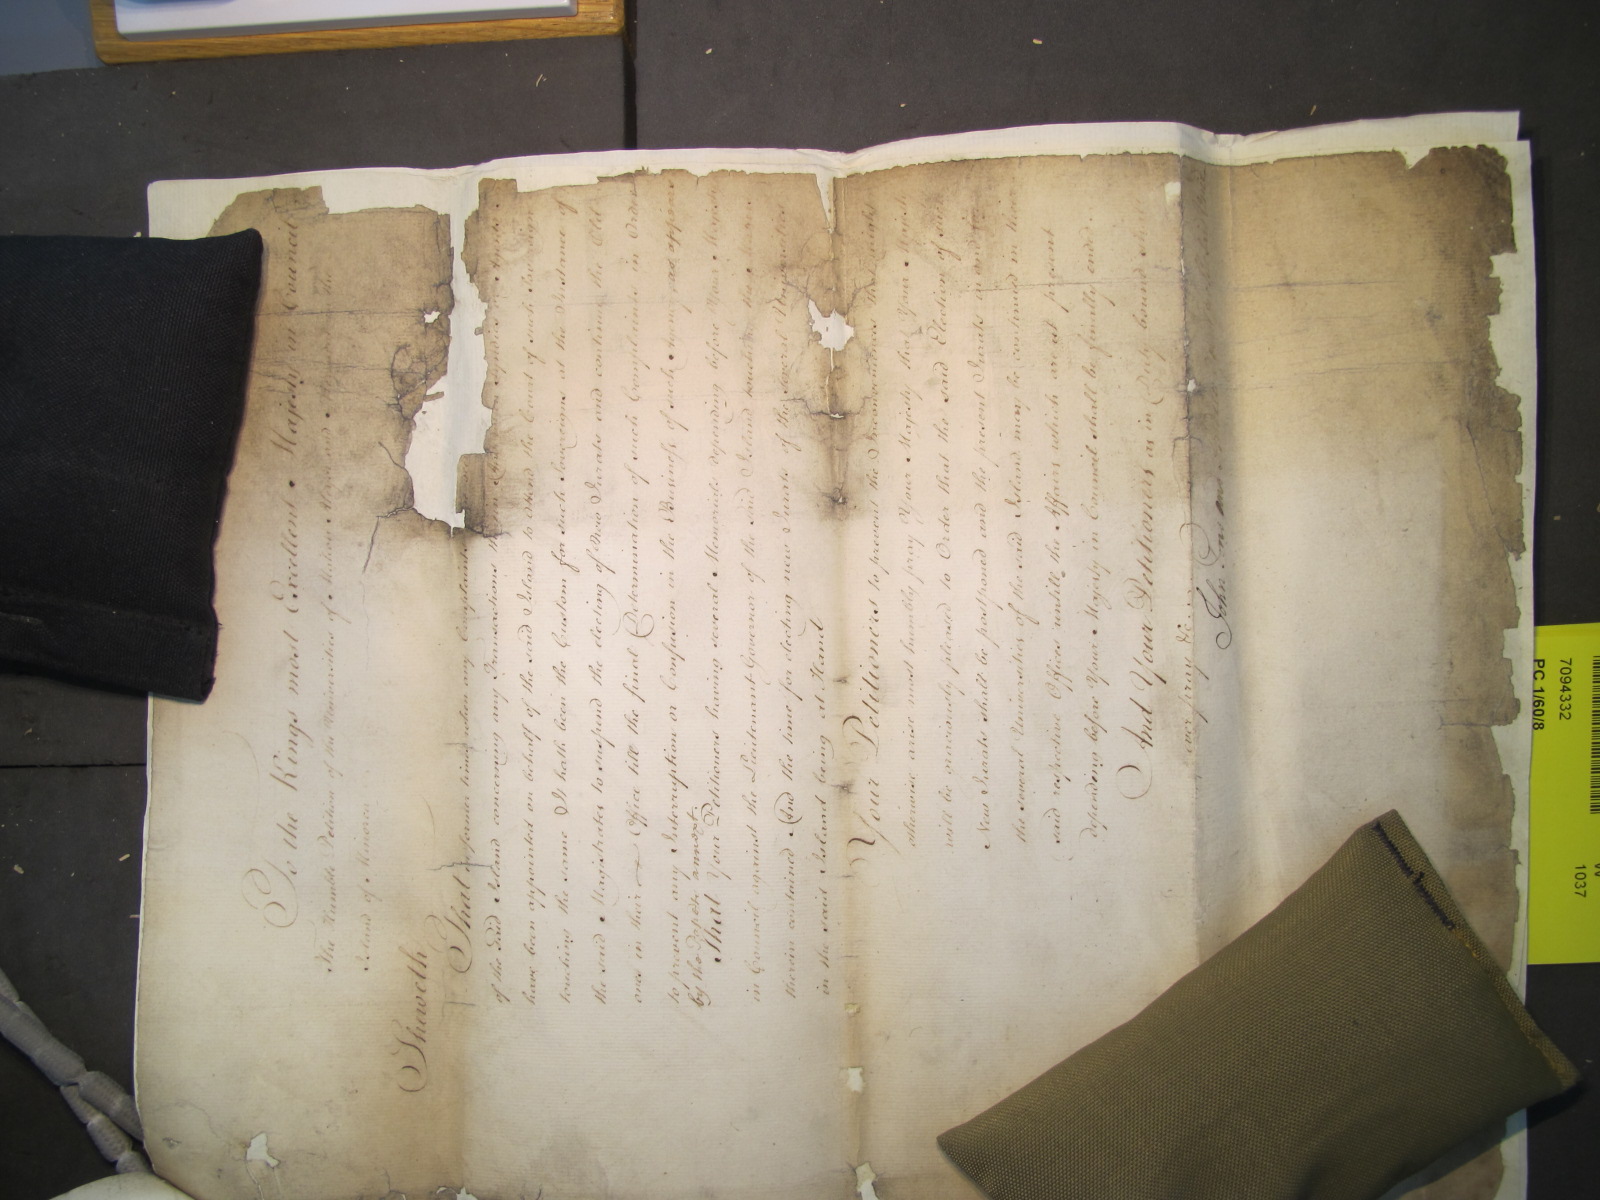 To the Kings most Excellent Majesty in Council
The Humble Petition of the Universities of Mahon Alaior and the
Island of Minorca
Sheweth
That
of the said Island concerning any Transactions
have been appointed on behalf of the said Island to attend the Court of such Sovereign
touching the same It hath been the Custom for such Sovereigns at the Instance of
the said Magistrates to suspend the electing of New Jurats and continue the Old
ones in their Office till the final Determination of such Complainte in Order
to prevent any Interruption or Confusion in the Business of such
by the
That Your Petitioners having several Memorials depending before Your Majesty
in Council against the Lieutenant Governor of the said Island touching the
therein contained And the time for electing new Jurats of the several Universities
in the said Island being at Hand
Your Petitioners to prevent the Inconveniences that might
otherwise arise most humbly pray Your Majesty that Your Majesty
will be graciously pleased to Order that the said Election of such
New Jurats shall be postponed and the present Jurats in and for
the several Universities of the said Island may be continued in their
said respective Offices untill the Affairs which are at present
depending before Your Majesty in Council shall be finally ended
And Your Petitioners as in Duty bound shall
ever pray &c
John
7094332
PC 1/60/8
1037